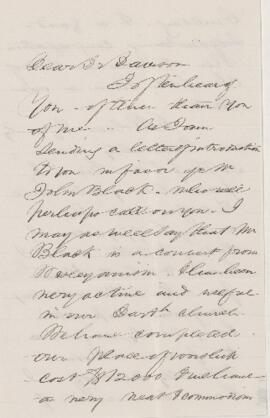 Dear Dr Dawson
I often hear of
you - oftener than you
of me. As I am
sending a letter of introduction
to you in favor of Mr
John Black - who will
perhaps call on you. I
may as well say that Mr
Black is a convert from
. He has been
very active and useful
in our church.
We have completed
our place of worship
cost $12000 & we have
a very neat & commodious